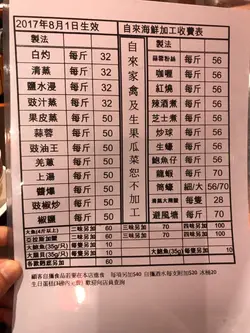 2017年8月1日生效 自來海鮮加工收費表
製法 製法
白灼 每斤 32 蒜蓉粉絲 每斤 56
清蒸 每斤 32 咖喱 每斤 56
鹽水浸 每斤 32 紅燒 每斤 56
豉汁蒸 每斤 32 辣酒煮 每斤 56
果皮蒸 每斤 50 芝士煮 每斤 56
蒜蓉 每斤 50 炒球 每斤 56
豉油王 每斤 50 生蠔 每斤 56
羌蔥 每斤 50 鮑魚仔 每斤 56
上湯 每斤 50 龍蝦 每斤 70
醬爆 每斤 50 生蠔 細/大 56/70
豉椒炒 每斤 50 每隻 28
椒鹽 每斤 50 避風塘 每斤 70
自來家禽及生果瓜菜恕不加工
大魚(4斤以上) 二味另加 60 三味另加 70 四味另加 100
亞拉斯加蟹 二味另加 60 三味另加 70 四味另加 100
大鮑魚(35g/只) 每隻另加 10 大鮑魚(35g) 每隻另加 10
每隻另加 10
60
顧客自攜食品若要在本店進食 每項另加$40 自攜酒水每支附加$20 冰桶20
生日蛋糕(3磅內元費) 歡迎向店員查詢